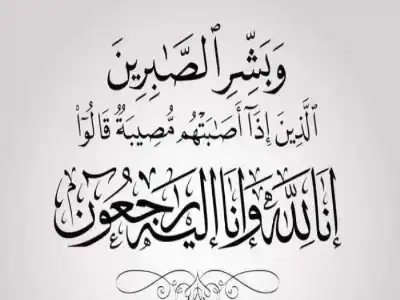 وَبَشِّرِ ٱلصَّٰبِرِينَ
ٱلَّذِينَ إِذَآ أَصَٰبَتْهُم مُّصِيبَةٌ قَالُوٓا۟
إنا لله وإنا إليه راجعون